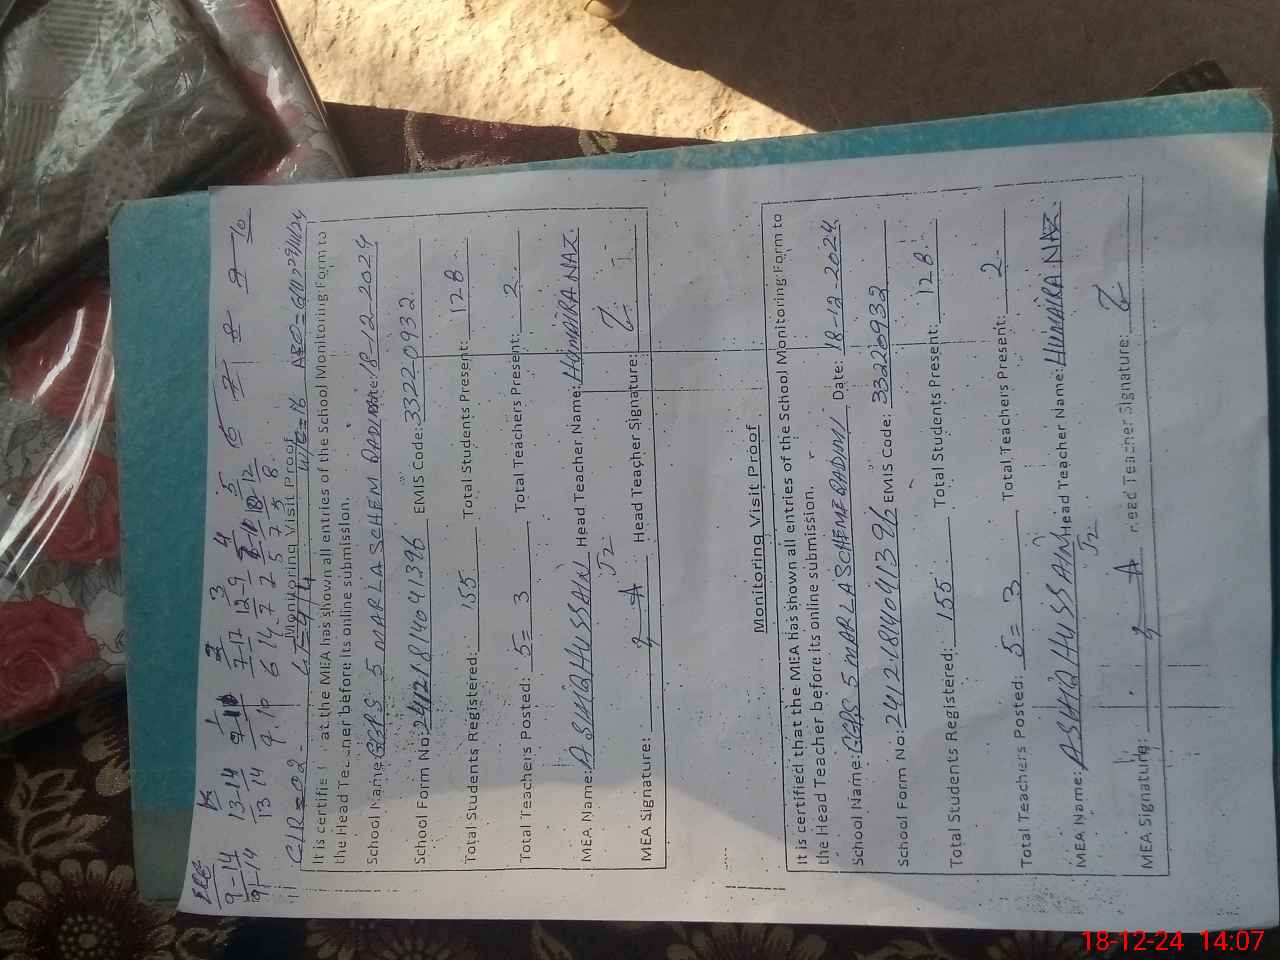 ECE K 1 2 3 4 5 6 7 8 9 10
9-14 13-14 7-17 12-9
9-14 13 14 9 10 6 14 7 2 5 7 5 8
C/R=02
Monitoring Visit Proof
the MEA has shown all entries of the School Monitoring Form to
the Head Teacher before its online submission.
School Name: GGPS 5 MARLA SCHEM BADIMI Date: 18-12-2024
School Form No: 24121814041396 EMIS Code: 33220932
Total Students Registered: 155 Total Students Present: 128
Total Teachers Posted: 5= 3 Total Teachers Present: 2
MEA Name: ASHIQ HUSSAIN Head Teacher Name: HUMAIRA NAZ
MEA Signature: Head Teacher Signature:
Monitoring Visit Proof
It is certified that the MEA has shown all entries of the School Monitoring Form to
the Head Teacher before its online submission.
School Name: GGPS 5 MARLA SCHEME BADIMI Date: 18-12-2024
School Form No: 24121814041396 EMIS Code: 33220932
Total Students Registered: 155 Total Students Present: 128
Total Teachers Posted: 5= 3 Total Teachers Present: 2
MEA Name: ASHIQ HUSSAIN Head Teacher Name: HUMAIRA NAZ
MEA Signature: Head Teacher Signature:
18-12-24 14:07